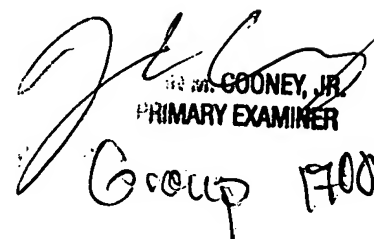 M. COONEY, JR.
PRIMARY EXAMINER
Group 1700